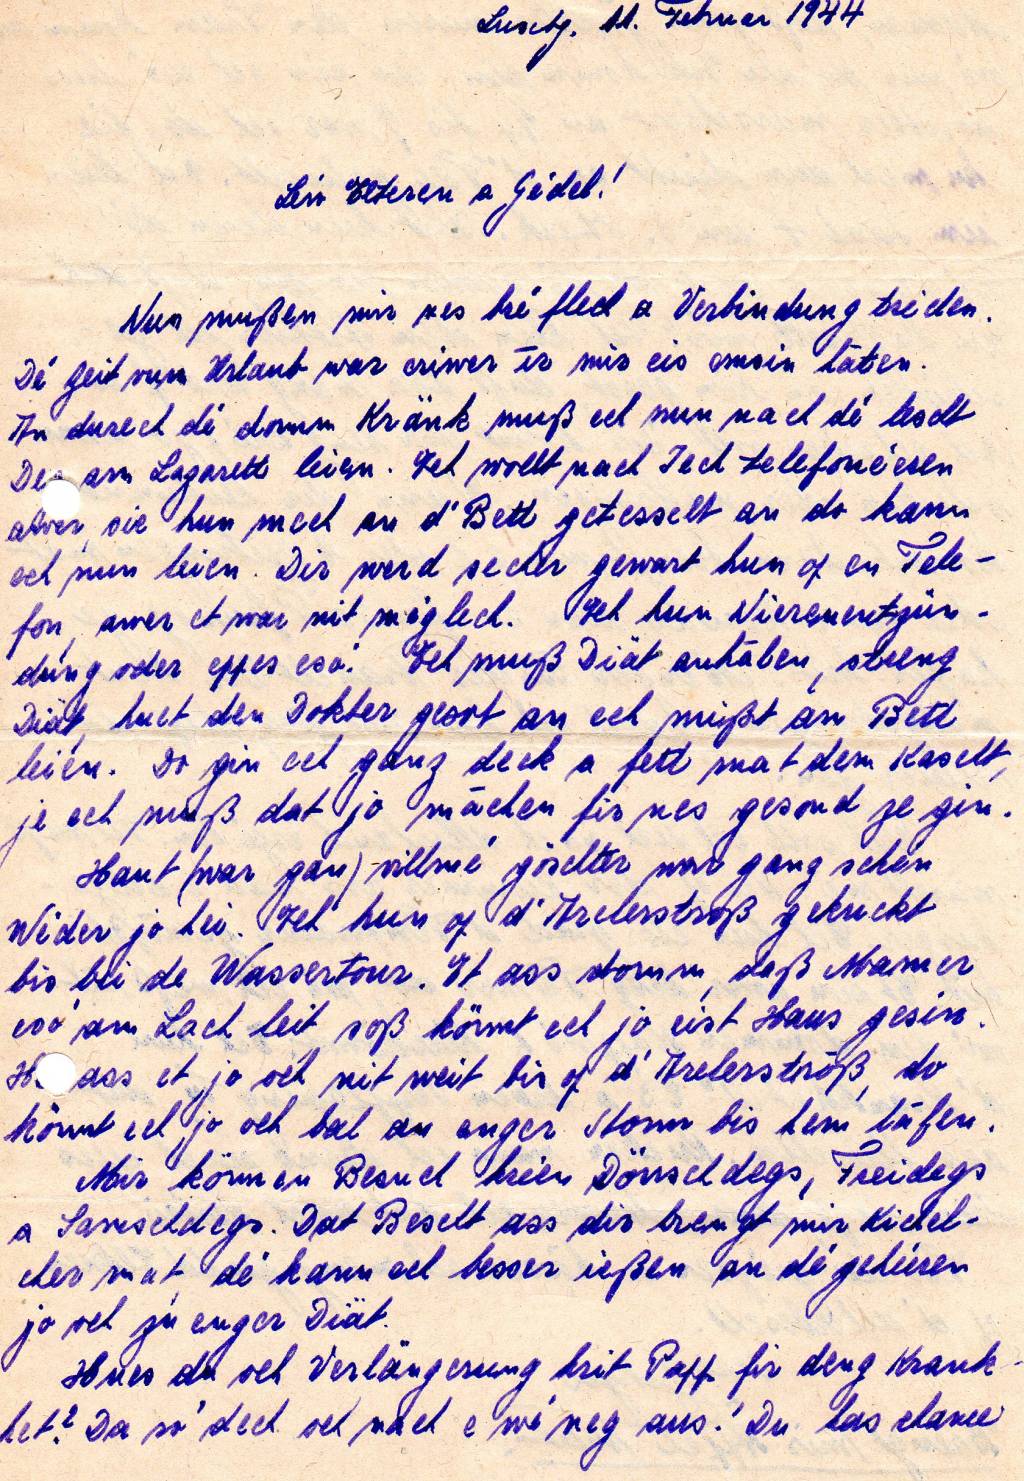 11. Februar 1944
Léiv Elteren a Gédel!
Nun mußen mir nes bré flech a Verbindung trieden.
Dé Zeit vum Urlaub war eriwer ir mir eis emsin hâten.
An durech dé domm Kränk muß ech nun nach dé lescht
Deg am Lazarett leien. Ech wollt nach Iech telefonéieren
awer, sie hun mech an d'Bett gefesselt an do kann
ech nun leien. Dir werd secher gewart hun of en Tele-
fon, awer et war nit méglech. Ech hun Nierenentzün-
dung oder eppes esó! Ech muß Diät anhâlen, streng
Diät, huet den Dokter gesot an ech mißt am Bett
leien. Do gin ech ganz deck a fett mat dem Kascht,
je ech muß dat jo mâchen fir nes gesond ze gin.
Haut (war gan) villmé göschter war gang schon
Wider jo hei. Ech hun of d'Arelerstroß gekuckt
bis bei de Wassertour. Et ass domm, daß Mamer
esó am Lach leit soß könnt ech jo eist Haus gesin.
ass et jo och nit weit bis of d'Arelerstroß, do
könnt ech jo och bal an enger Stonn bis hem lâfen.
Mir können Besuch kréien Dönschdegs, Freidegs
a Samschdegs. Dat Bescht ass dir brengt mir Kichel-
cher mat, dé kann ech besser ießen an dé gehéieren
jo och zu enger Diät.
Hues du och Verlängerung krit Papp fir deng Krank-
het? Da ró dech och nach e wéneg aus! Du has chance